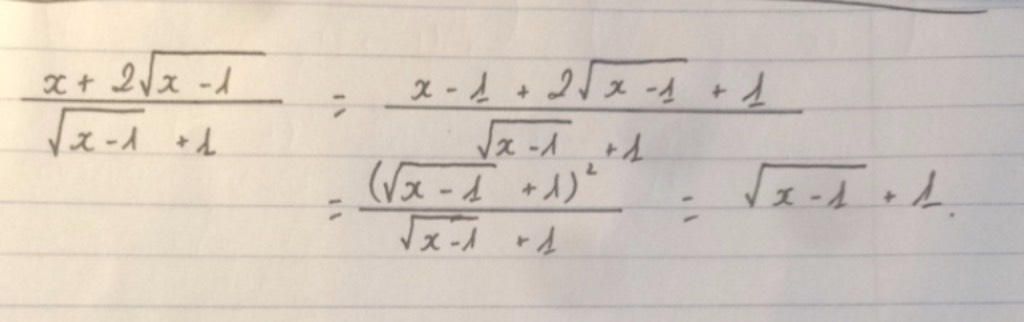 (x + 2√(x - 1)) / (√(x - 1) + 1) = (x - 1 + 2√(x - 1) + 1) / (√(x - 1) + 1)
= (√(x - 1) + 1)² / (√(x - 1) + 1) = √(x - 1) + 1.